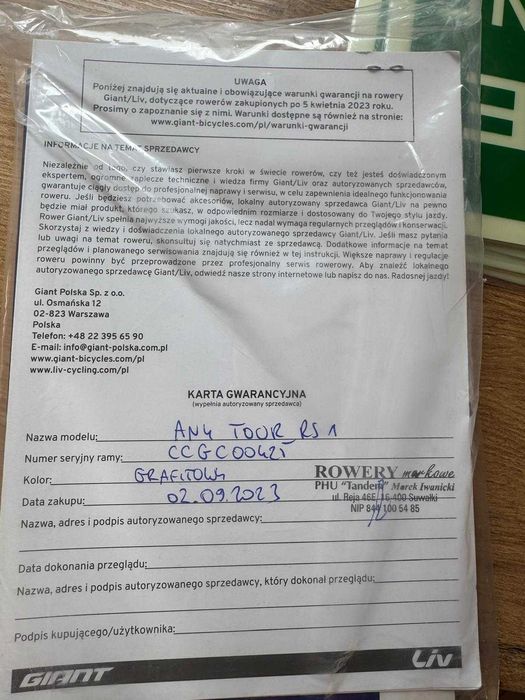 UWAGA
Poniżej znajdują się aktualne i obowiązujące warunki gwarancji na rowery
Giant/Liv, dotyczące rowerów zakupionych po 5 kwietnia 2023 roku.
Prosimy o zapoznanie się z nimi. Warunki dostępne są również na stronie:
www.giant-bicycles.com/pl/warunki-gwarancji
INFORMACJE NA TEMAT SPRZEDAWCY
Niezależnie od tego, czy stawiasz pierwsze kroki w świecie rowerów, czy też jesteś doświadczonym
ekspertem, ogromne zaplecze techniczne i wiedza firmy Giant/Liv oraz autoryzowanych sprzedawców,
gwarantuje ciągły dostęp do profesjonalnej naprawy i serwisu, w celu zapewnienia idealnego funkcjonowania
roweru. Jeśli będziesz potrzebować akcesoriów, lokalny autoryzowany sprzedawca Giant/Liv na pewno
będzie miał produkt, którego szukasz, w odpowiednim rozmiarze i dostosowany do Twojego stylu jazdy.
Rower Giant/Liv spełnia najwyższe wymogi jakości, lecz nadal wymaga regularnych przeglądów i konserwacji.
Skorzystaj z wiedzy i doświadczenia lokalnego autoryzowanego sprzedawcy Giant/Liv. Jeśli masz pytania
lub uwagi na temat roweru, skonsultuj się natychmiast ze sprzedawcą. Dodatkowe informacje na temat
przeglądów i planowanego serwisowania znajdują się również w tej instrukcji. Większe naprawy i regulacje
roweru powinny być przeprowadzone przez profesjonalny serwis rowerowy. Aby znaleźć lokalnego
autoryzowanego sprzedawcę Giant/Liv, odwiedź nasze strony internetowe lub napisz do nas. Radosnej jazdy!
Giant Polska Sp. z o.o.
ul. Osmańska 12
02-823 Warszawa
Polska
Telefon: +48 22 395 65 90
E-mail: info@giant-polska.com.pl
www.giant-bicycles.com/pl
www.liv-cycling.com/pl
KARTA GWARANCYJNA
(wypełnia autoryzowany sprzedawca)
Nazwa modelu: ANY TOUR RS 1
Numer seryjny ramy: CCGC00421
Kolor: GRAFITOWY
Data zakupu: 02.09.2023
ROWERY markowe
PHU "Tandem" Marek Iwanicki
ul. Reja 46E, 16-400 Suwałki
NIP 844 100 54 85
Nazwa, adres i podpis autoryzowanego sprzedawcy:
Data dokonania przeglądu:
Nazwa, adres i podpis autoryzowanego sprzedawcy, który dokonał przeglądu:
Podpis kupującego/użytkownika:
GIANT
Liv